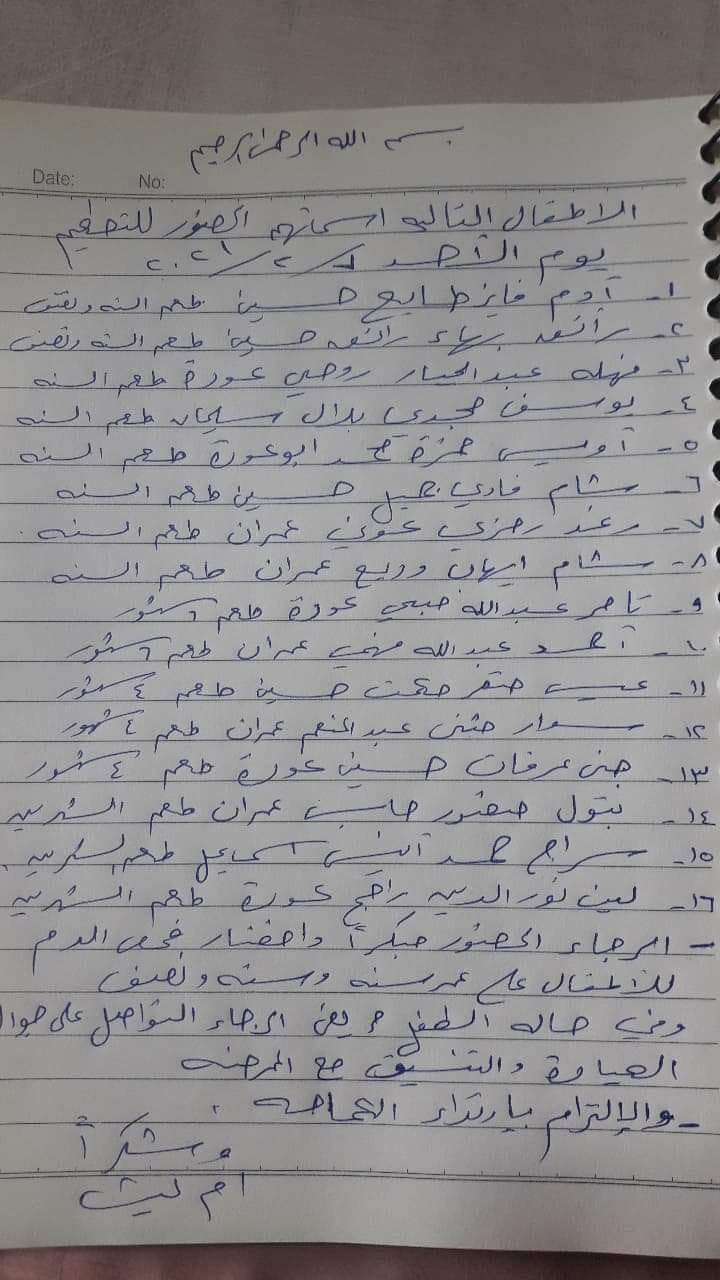 بسم الله الرحمن الرحيم
Date: No:
الاطفال التاليه اسمائهم الحضور للتطعيم
يوم الأحد ٢٠٢١/٢/
١- آدم فايز طايع حسين طعم السنه ونصف
٢- رأفت بهاء رأفت حسين طعم السنه ونصف
٣- عبد الجبار روحي عودة طعم السنه
٤- يوسف مجدي بلال سليمان طعم السنه
٥- أويس حمزة محمد ابو عودة طعم السنه
٦- شام فادي جميل حسين طعم السنه
٧- رغد رمزي عوني عمران طعم السنه
٨- شام ايهان وديع عمران طعم السنه
٩- تامر عبدالله صبحي عودة طعم ٦ شهور
١٠- أحمد عبدالله عمران طعم ٦ شهور
١١- صقر حكمت حسين طعم ٤ شهور
١٢- سوار مثنى عبد المنعم عمران طعم ٤ شهور
١٣- جنى عرفات حسين عودة طعم ٤ شهور
١٤- بتول منصور عمران طعم الشهرين
١٥- سراج محمد أنيس اسماعيل طعم الشهرين
١٦- لين نور الدين راجح عودة طعم الشهرين
- الرجاء الحضور مبكراً واحضار فحص الدم
للأطفال على عمر سنه وسنه ونصف
وفي حاله الطفل مريض الرجاء التواصل على جوال
العيادة والتنسيق مع الممرضه
- والإلتزام بإرتداء الكمامه .
وشكراً
ام ليث